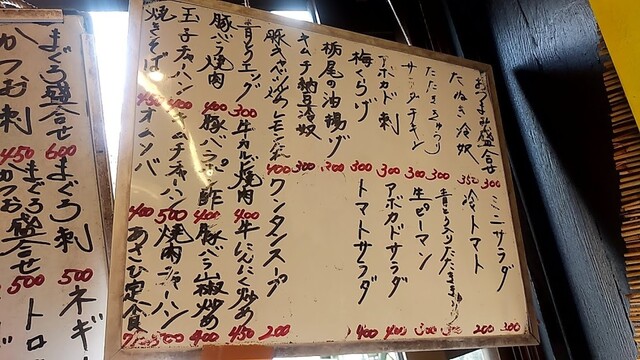 おつまみ盛合せ 300
たぬき冷奴 350
たたききゅうり 300
サラダチキン 300
アボカド刺 300
梅くらげ 300
栃尾の油揚げ
キムチ納豆冷奴 300
豚キャベ炒め レモンだれ 400
青とうエッグ 300
豚バラ焼肉 400
玉子チャーハン 400
焼きそば 450
ミニサラダ 300
冷トマト 200
生ピーマン 300
アボカドサラダ 400
トマトサラダ 400
ワンタンスープ 200
牛カルビ焼肉 400
牛にんにく炒め 450
豚バラポン酢 400
豚バラ山椒炒め 400
キムチチャーハン 500
焼肉チャーハン
オムソバ 400
あさひ定食
まぐろ盛合せ 600
かつお刺 450
まぐろ刺 500
まぐろ盛合せ
かつお 500
ネギ
トロ